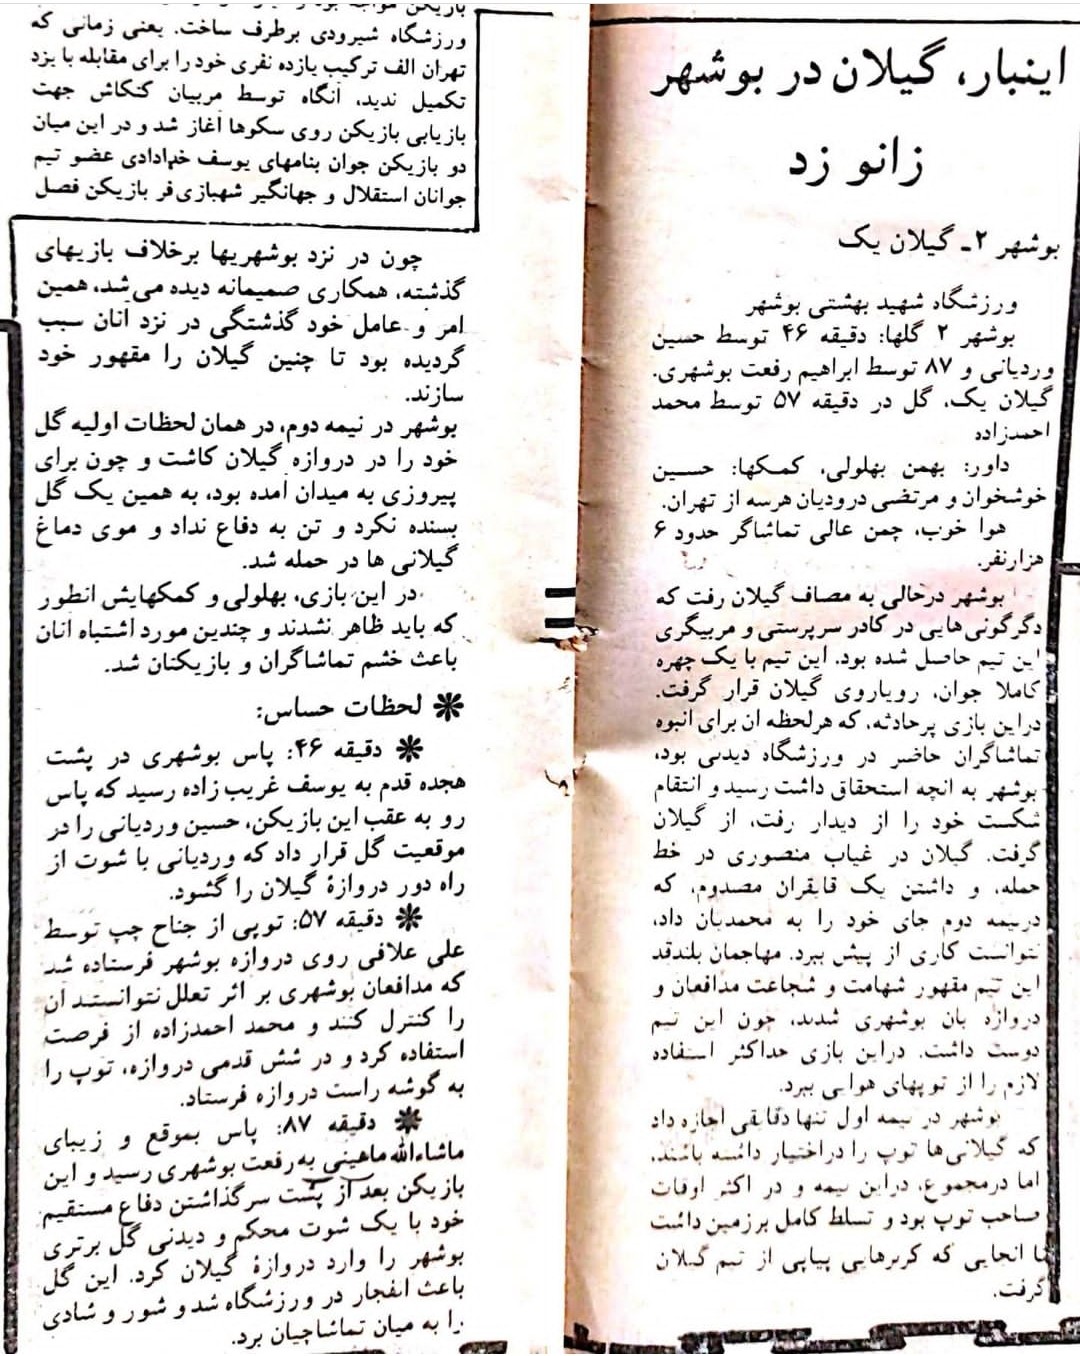 اینبار، گیلان در بوشهر
زانو زد
بوشهر ۲ـ گیلان یک
ورزشگاه شهید بهشتی بوشهر
بوشهر ۲ گلها: دقیقه ۴۶ توسط حسین
وردیانی و ۸۷ توسط ابراهیم رفعت بوشهری.
گیلان یک، گل در دقیقه ۵۷ توسط محمد
احمدزاده
داور: بهمن بهلولی، کمکها: حسین
خوشخوان و مرتضی درودیان هرسه از تهران.
هوا خوب، چمن عالی تماشاگر حدود ۶
هزارنفر.
بوشهر درحالی به مصاف گیلان رفت که
دگرگونی‌هایی در کادر سرپرستی و مربیگری
این تیم حاصل شده بود. این تیم با یک چهره
کاملا جوان، رویاروی گیلان قرار گرفت.
دراین بازی پرحادثه، که هرلحظه ان برای انبوه
تماشاگران حاضر در ورزشگاه دیدنی بود،
بوشهر به انچه استحقاق داشت رسید و انتقام
شکست خود را از دیدار رفت، از گیلان
گرفت. گیلان در غیاب منصوری در خط
حمله، و داشتن یک قایقران مصدوم، که
درنیمه دوم جای خود را به محمدیان داد،
نتوانست کاری از پیش ببرد. مهاجمان بلندقد
این تیم مقهور شهامت و شجاعت مدافعان و
دروازه بان بوشهری شدند، چون این تیم
دوست داشت. دراین بازی حداکثر استفاده
لازم را از توپهای هوایی ببرد.
بوشهر در نیمه اول تنها دقایقی اجازه داد
که گیلانی‌ها توپ را دراختیار داشته باشند،
اما درمجموع، دراین نیمه و در اکثر اوقات
صاحب توپ بود و تسلط کامل برزمین داشت
تا انجایی که کرنرهایی پیاپی از تیم گیلان
گرفت.
ورزشگاه شیرودی برطرف ساخت. یعنی زمانی که
تهران الف ترکیب یازده نفری خود را برای مقابله با یزد
تکمیل ندید، آنگاه توسط مربیان کنکاش جهت
بازیابی بازیکن روی سکوها آغاز شد و در این میان
دو بازیکن جوان بنامهای یوسف خدادادی عضو تیم
جوانان استقلال و جهانگیر شهبازی‌فر بازیکن فصل
چون در نزد بوشهریها برخلاف بازیهای
گذشته، همکاری صمیمانه دیده می‌شد، همین
امر و عامل خود گذشتگی در نزد انان سبب
گردیده بود تا چنین گیلان را مقهور خود
سازند.
بوشهر در نیمه دوم، در همان لحظات اولیه گل
خود را در دروازه گیلان کاشت و چون برای
پیروزی به میدان آمده بود، به همین یک گل
بسنده نکرد و تن به دفاع نداد و موی دماغ
گیلانی ها در حمله شد.
در این بازی، بهلولی و کمکهایش انطور
که باید ظاهر نشدند و چندین مورد اشتباه انان
باعث خشم تماشاگران و بازیکنان شد.
❋ لحظات حساس:
❋ دقیقه ۴۶: پاس بوشهری در پشت
هجده قدم به یوسف غریب زاده رسید که پاس
رو به عقب این بازیکن، حسین وردیانی را در
موقعیت گل قرار داد که وردیانی با شوت از
راه دور دروازهٔ گیلان را گشود.
❋ دقیقه ۵۷: توپی از جناح چپ توسط
علی علافی روی دروازه بوشهر فرستاده شد
که مدافعان بوشهری بر اثر تعلل نتوانستند ان
را کنترل کنند و محمد احمدزاده از فرصت
استفاده کرد و در شش قدمی دروازه، توپ را
به گوشه راست دروازه فرستاد.
❋ دقیقه ۸۷: پاس بموقع و زیبای
ماشاءالله ماهینی به رفعت بوشهری رسید و این
بازیکن بعد از پشت سرگذاشتن دفاع مستقیم
خود با یک شوت محکم و دیدنی گل برتری
بوشهر را وارد دروازهٔ گیلان کرد. این گل
باعث انفجار در ورزشگاه شد و شور و شادی
را به میان تماشاچیان برد.